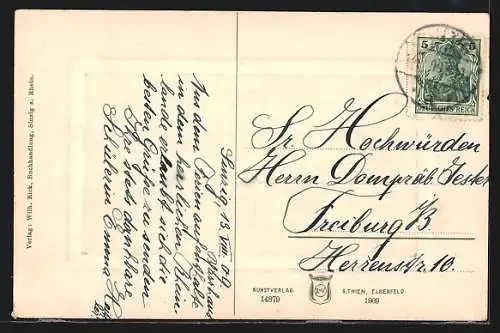 Verlag: Wilh. Rick, Buchhandlung, Sinzig a. Rhein.
Sinzig 13. VIII. 09.
Aus dem
in dem
lande erlaubt sich die
besten Grüße zu senden
Ihre stets dankbare
Schülerin Emma
5 5
DEUTSCHES REICH
Sr. Hochwürden
Herrn Dompräb.
Freiburg i/B.
Herrenstr. 10.
KUNSTVERLAG
14979
G. THIEN, ELBERFELD
1909